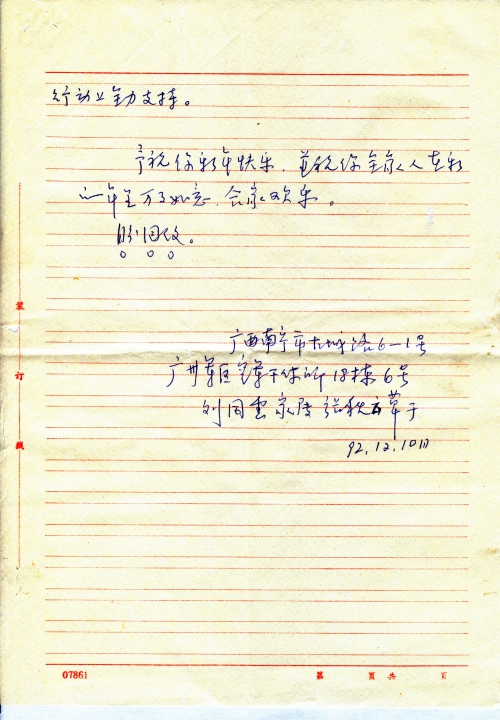 行动上全力支持。
予祝你新年快乐，并祝你全家人在新
的一年里万事如意，合家欢乐。
盼回文。
广西南宁市古城路6—1号
广州军区空军干休所18栋6号
刘国 家属 张秋 草于
92.12.10日
装
订
线
07861
第 页 共 页